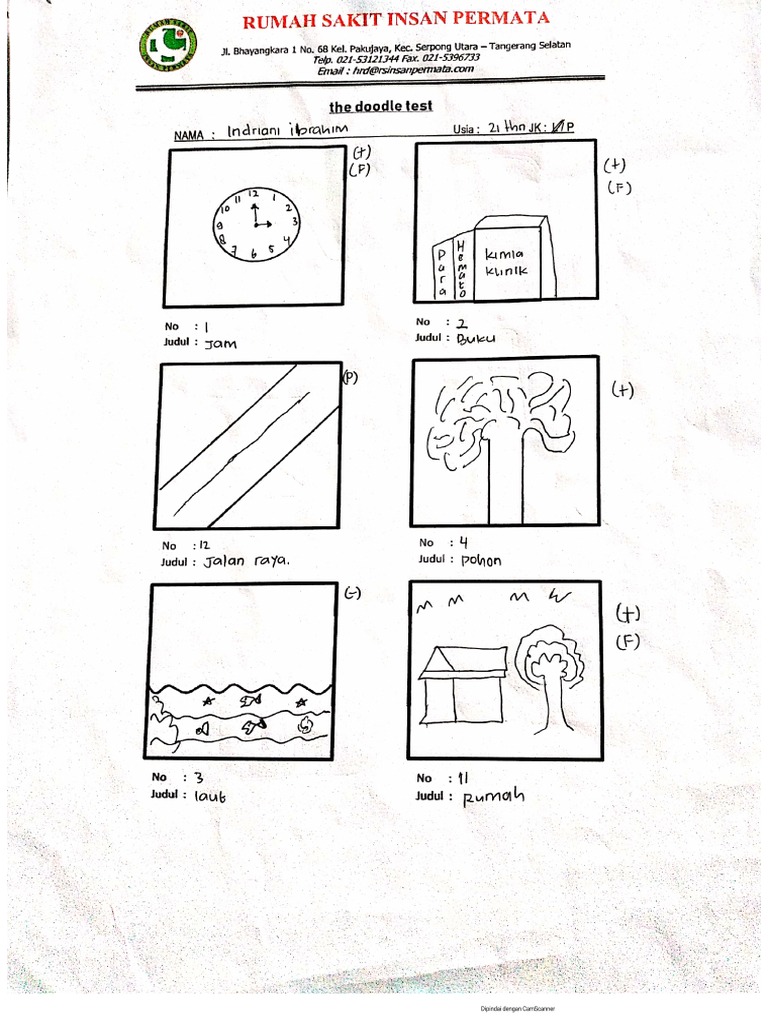 RUMAH SAKIT INSAN PERMATA
Jl. Bhayangkara 1 No. 68 Kel. Pakujaya, Kec. Serpong Utara – Tangerang Selatan
Telp. 021-53121344 Fax. 021-5396733
Email : hrd@rsinsanpermata.com
the doodle test
NAMA : Indriani ibrahim Usia : 21 thn JK : L/P
(+)
(F)
12
11 1
10 2
9 3
8 4
7 6 5
(+)
(F)
Para
Hemato
kimia
klinik
No : 1
Judul : Jam
No : 2
Judul : Buku
(P)
(+)
No : 12
Judul : Jalan raya.
No : 4
Judul : pohon
(-)
(+)
(F)
No : 3
Judul : laut
No : 11
Judul : Rumah
Dipindai dengan CamScanner